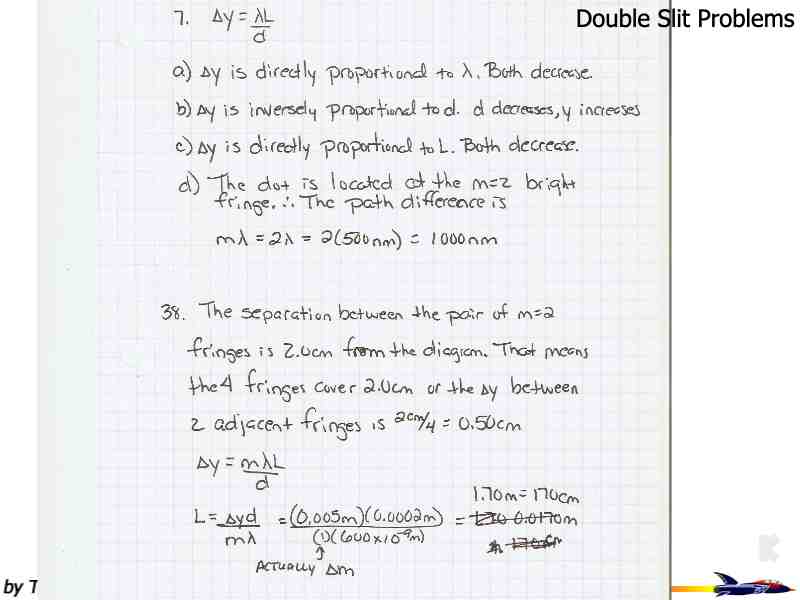 Double Slit Problems
7. Δy = λL
d
a) Δy is directly proportional to λ. Both decrease.
b) Δy is inversely proportional to d. d decreases, y increases
c) Δy is directly proportional to L. Both decrease.
d) The dot is located at the m=2 bright
fringe. ∴ The path difference is
mλ = 2λ = 2(500nm) = 1000nm
38. The separation between the pair of m=2
fringes is 2.0cm from the diagram. That means
the 4 fringes cover 2.0cm or the Δy between
2 adjacent fringes is 2cm/4 = 0.50cm
Δy = mλL
d
1.70m = 170cm
L = Δyd = (0.005m)(0.0002m) = 0.0170m
mλ (1)(600×10⁻⁹m)
Actually Δm
by T